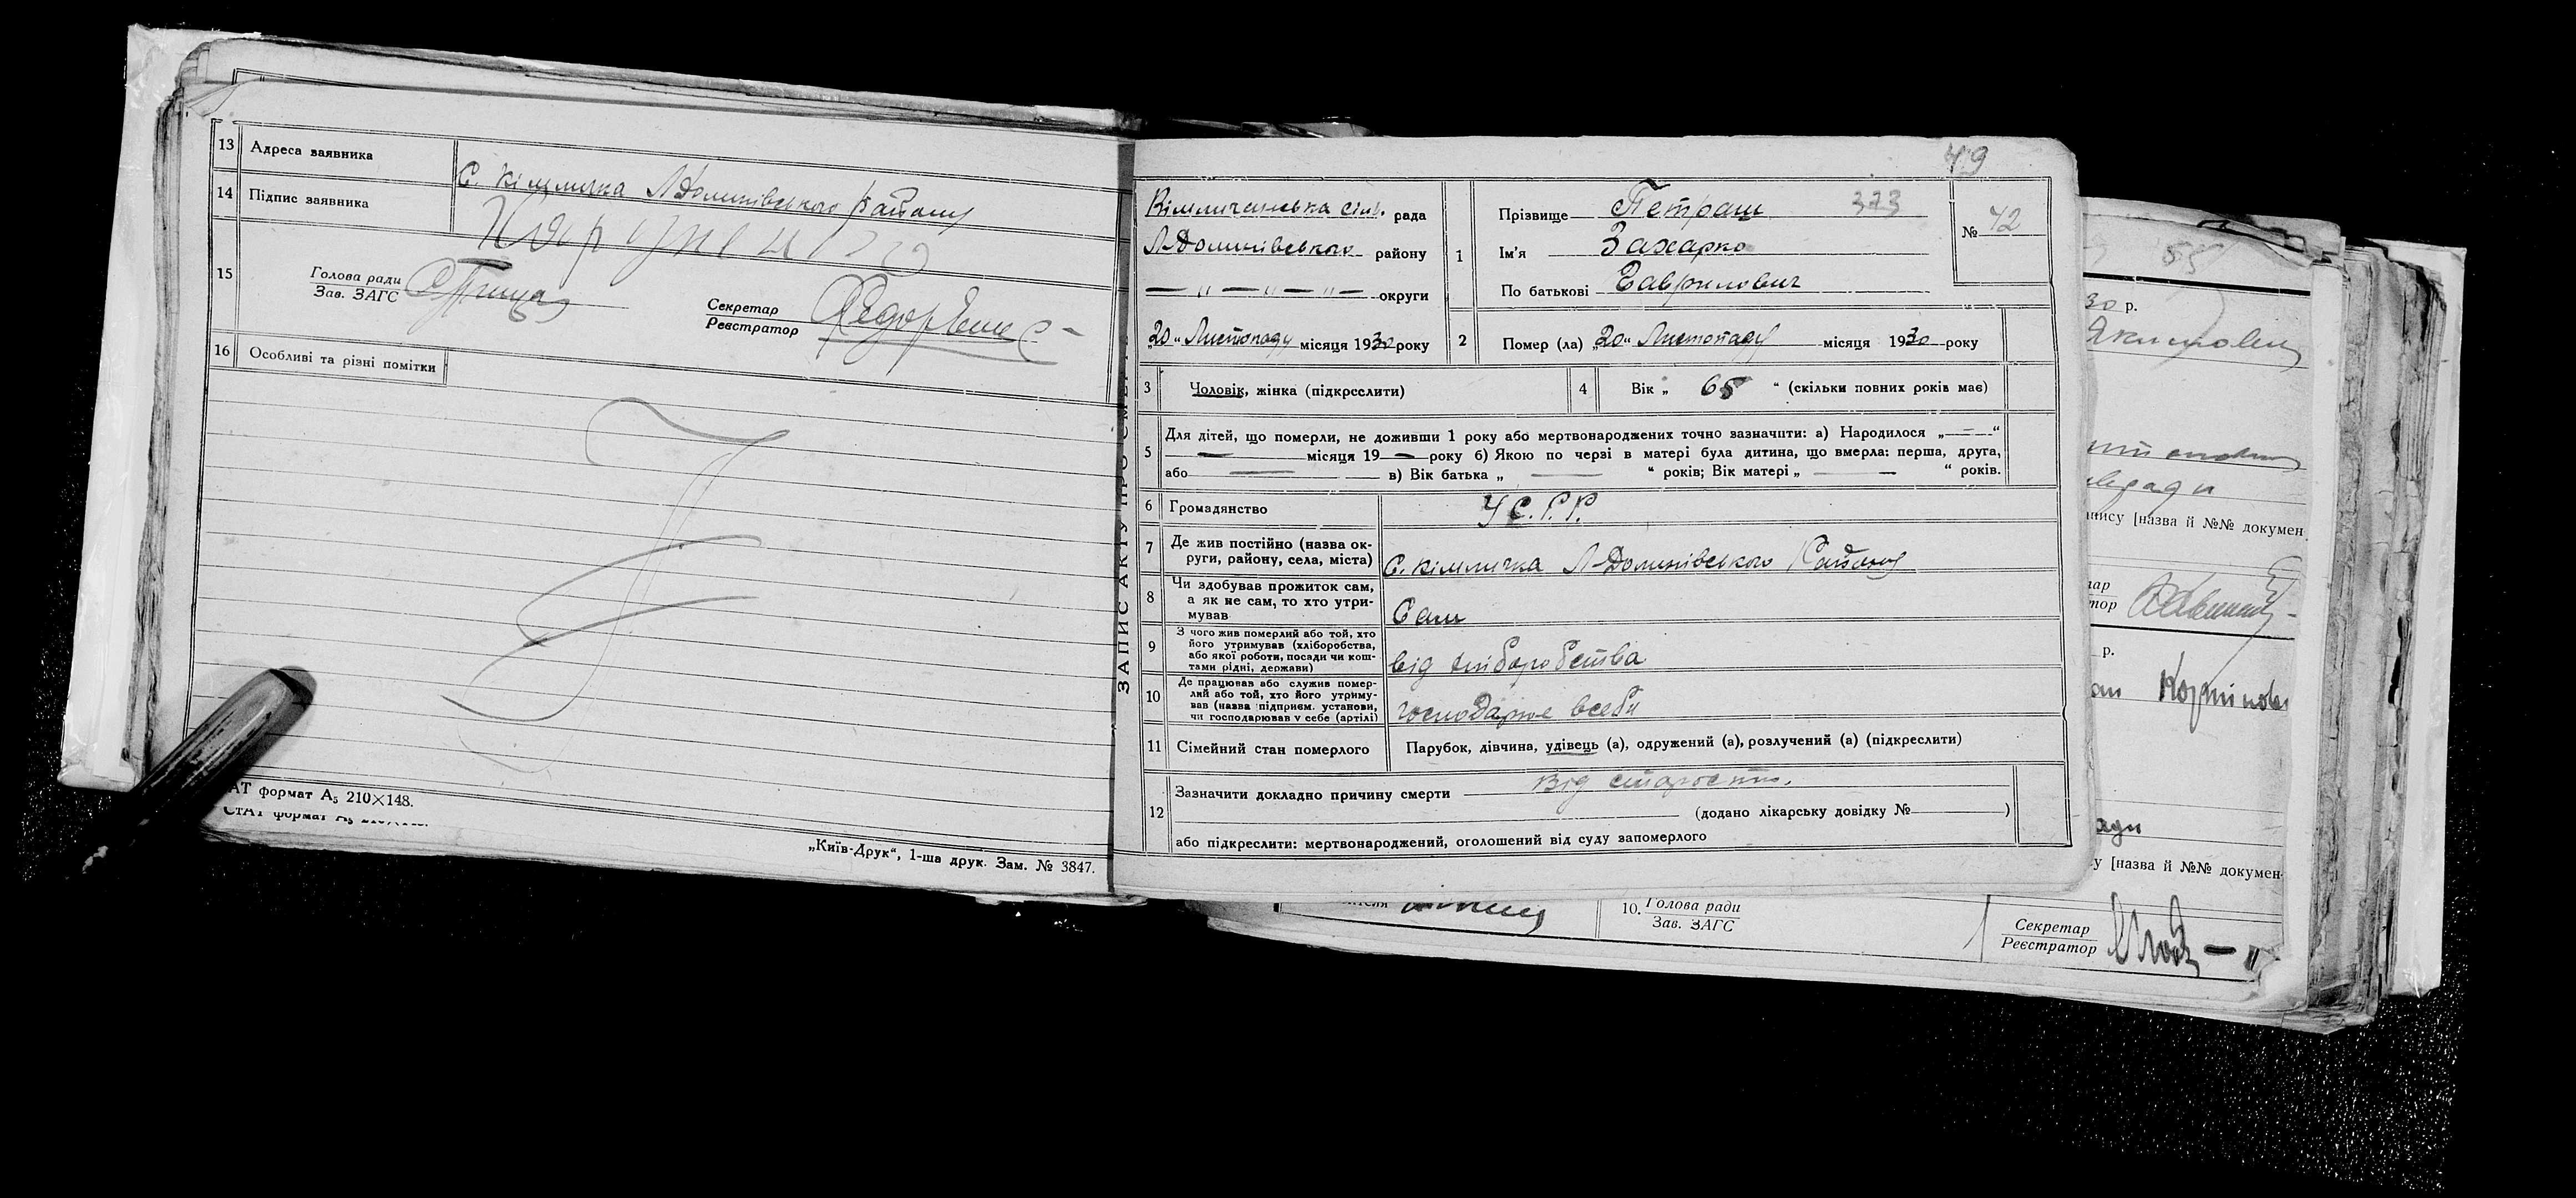 13 Адреса заявника
С. Кімличка Л-Долинівського Району
14 Підпис заявника
15 Голова ради
Зав. ЗАГС
Секретар
Реєстратор
16 Особливі та різні помітки
АТ формат А5 210×148.
СТАТ формат А5 210×148.
„Київ-Друк“, 1-ша друк. Зам. № 3847.
ЗАПИС АКТУ ПРО СМЕР
49
Кімличанська сіль. рада
Л-Долинівського району
— „ — „ — „ — округи
„20“ Листопаду місяця 1930 року
1 Прізвище Петраш 373
Ім'я Захарко
По батькові Гаврилович
№ 42
2 Помер (ла) „20“ Листопаду місяця 1930 року
3 Чоловік, жінка (підкреслити)
4 Вік „ 65 “ (скільки повних років має)
5 Для дітей, що померли, не доживши 1 року або мертвонароджених точно зазначити: а) Народилося „—“
— місяця 19 — року б) Якою по черзі в матері була дитина, що вмерла: перша, друга,
або — в) Вік батька „ — “ років; Вік матері „ — “ років.
6 Громадянство У.С.Р.Р.
7 Де жив постійно (назва ок-
руги, району, села, міста) С. Кімличка Л-Долинівського Району
8 Чи здобував прожиток сам,
а як не сам, то хто утри-
мував Сам
9 З чого жив померлий або той, хто
його утримував (хліборобства,
або якої роботи, посади чи кош-
тами рідні, держави) від хліборобства
10 Де працював або служив помер-
лий або той, хто його утриму-
вав (назва підприєм. установи,
чи господарював у себе (артілі) господарює всебе
11 Сімейний стан померлого Парубок, дівчина, удівець (а), одружений (а), розлучений (а) (підкреслити)
12 Зазначити докладно причину смерти Від старости.
(додано лікарську довідку № )
або підкреслити: мертвонароджений, оголошений від суду запомерлого
55
30 р.
пису [назва й №№ докумен
р.
ади
у [назва й №№ докумен-
10. Голова ради
Зав. ЗАГС
Секретар
Реєстратор